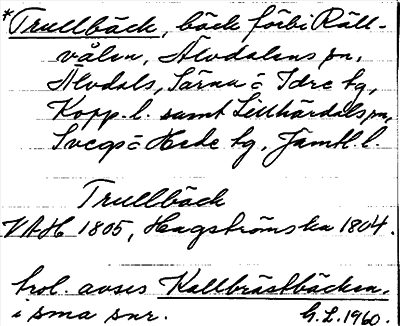 *Trullbäck, bäck förbi Räll-
vålen, Älvdalens sn,
Älvdals, Särna o Idre tg,
Kopp. l. samt Lillhärdals sn,
Svegs o Hede tg, Jämtl. l.
Trullbäck
VAH 1805, Hagströmska 1804.
trol. avses Kallbrästbäcken,
i sma snr. G.L. 1960.